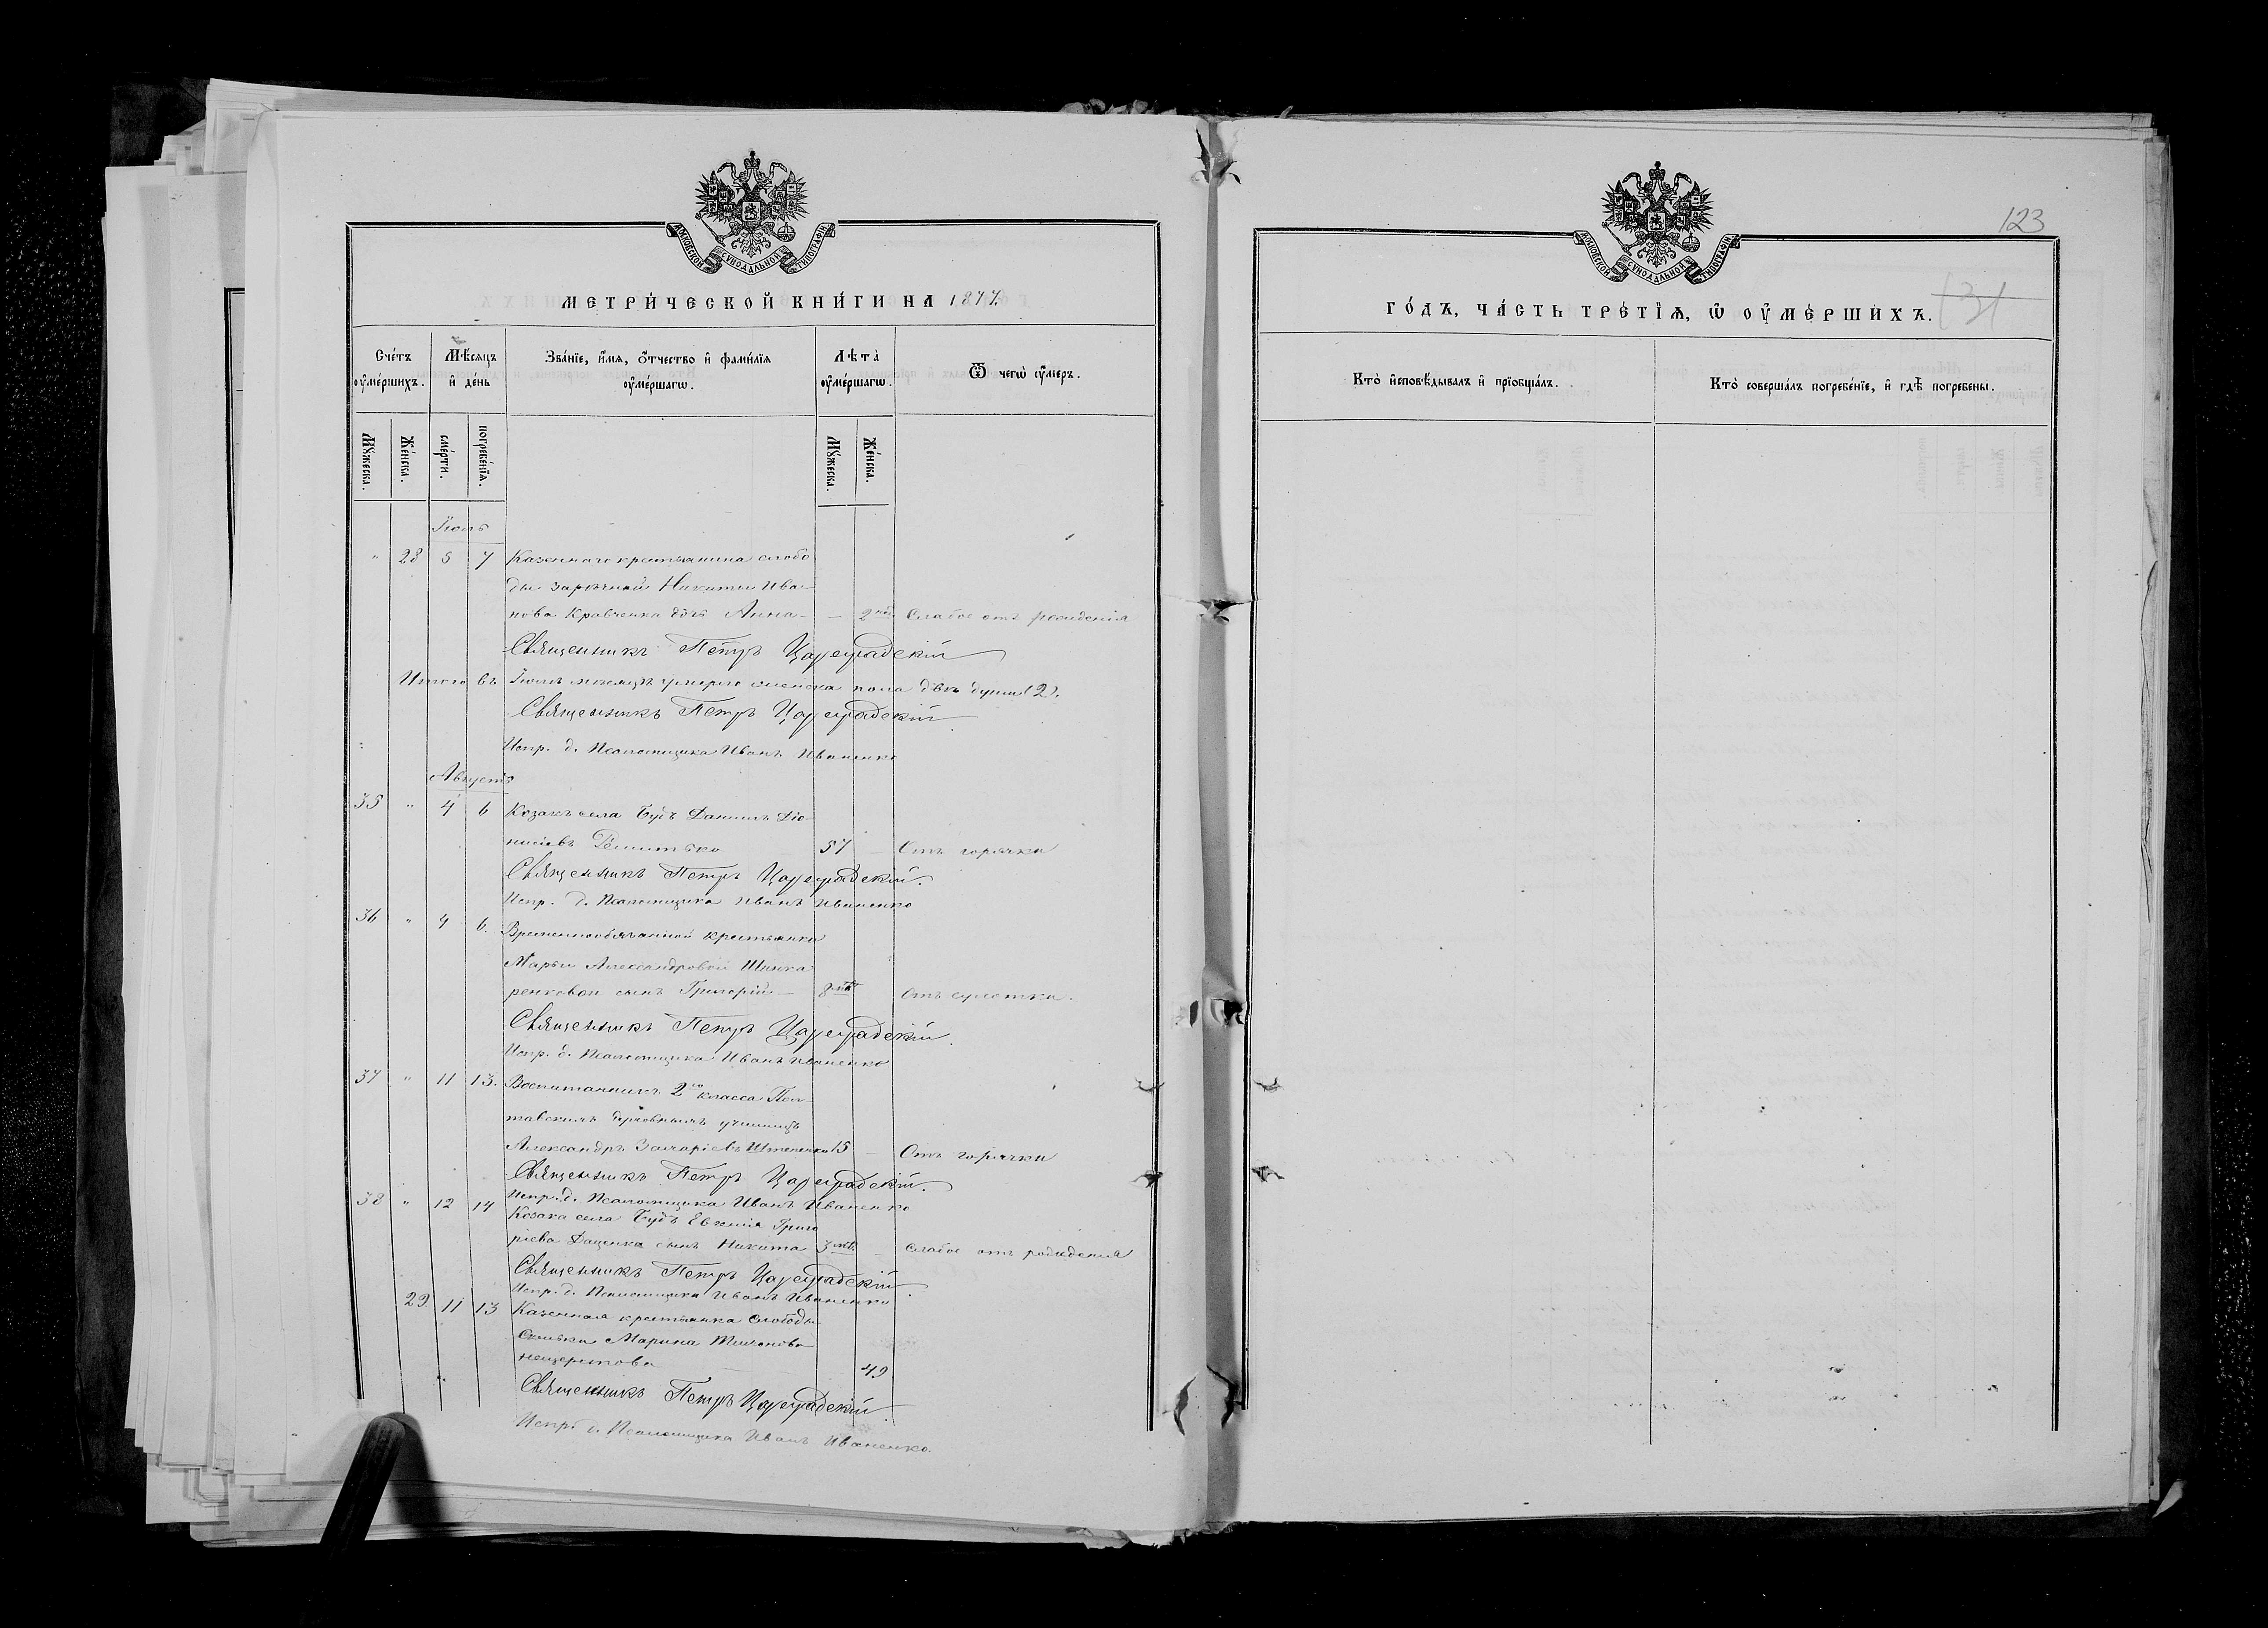 МОСКОВСКОЙ СѴНОДАЛЬНОЙ ТИПОГРАФІИ
МЕТРИ́ЧЕСКОЙ КНИ́ГИ НА 1877.
Сче́тъ ᲂу҆ме́ршихъ.
Мѣ́сяцъ и҆ де́нь
Зва́нїе, и҆́мѧ, ѻ҆́тчество и҆ фами́лїѧ ᲂу҆ме́ршагѡ.
Лѣ́та̀ ᲂу҆ме́ршагѡ.
Ѿ чегѡ̀ ᲂу҆́меръ.
Мꙋ́жеска.
Же́нска.
сме́рти.
погребе́нїѧ.
Мꙋ́жеска.
Же́нска.
Іюль
" 28 5 7 Казеннаго крестьянина слобо
ды Зарѣчной Никиты Ива-
нова Кравченка дочь Анна - — 2 нед. Слабое отъ рожденія
Священникъ Петръ Цареградскій
Итого въ Іюлѣ мѣсяцѣ умерло женска пола двѣ души (2).
Священникъ Петръ Цареградскій
Испр. д. Псаломщика Иванъ Иваненко
Августъ
35 " 4 6 Козакъ села Будъ Даніилъ Діо-
нисіевъ 57 — Отъ горячки
Священникъ Петръ Цареградскій.
Испр. д. Псаломщика Иванъ Иваненко
36 " 4 6. Временнообязанной крестьянки
Марьи Александровой Шинка
ренковой сынъ Григорій — 8 Отъ сухотки.
Священникъ Петръ Цареградскій.
Испр. д. Псаломщика Иванъ Иваненко
37 " 11 13. Воспитанникъ 2го класса Пол-
тавскихъ духовныхъ училищъ
Александръ Захаріевъ 15 — Отъ горячки
Священникъ Петръ Цареградскій.
Испр. д. Псаломщика Иванъ Иваненко
38 " 12 14 Козака села Будъ Евгенія Григо
ріева Даценка сынъ Никита 3 — слабое отъ рожденія
Священникъ Петръ Цареградскій.
Испр. д. Псаломщика Иванъ Иваненко
29 11 13 Казенная крестьянка слободы
Марина
49
Священникъ Петръ Цареградскій
Испр. д. Псаломщика Иванъ Иваненко.
МОСКОВСКОЙ СѴНОДАЛЬНОЙ ТИПОГРАФІИ
123
131
ГО́ДЪ, ЧА́СТЬ ТРЕ́ТЇѦ, Ѡ҆ ОУ҆МЕ́РШИХЪ.
Кто̀ и҆сповѣ́дывалъ и҆ прїѡбща́лъ.
Кто̀ соверша́лъ погребе́нїе, и҆ гдѣ̀ погребены̀.